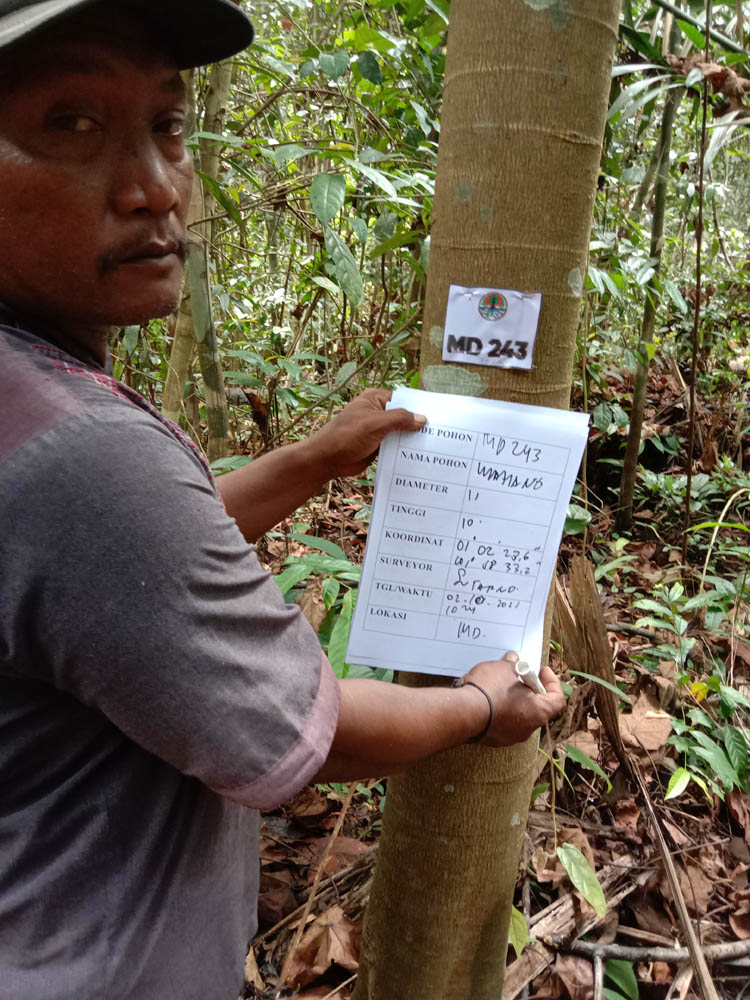 MD 243
DE POHON MD 243
NAMA POHON
DIAMETER 11
TINGGI 10
KOORDINAT 01° 02' 27,6"
58 33,2"
SURVEYOR
TGL/WAKTU 02-10-2021
10 24
LOKASI MD.